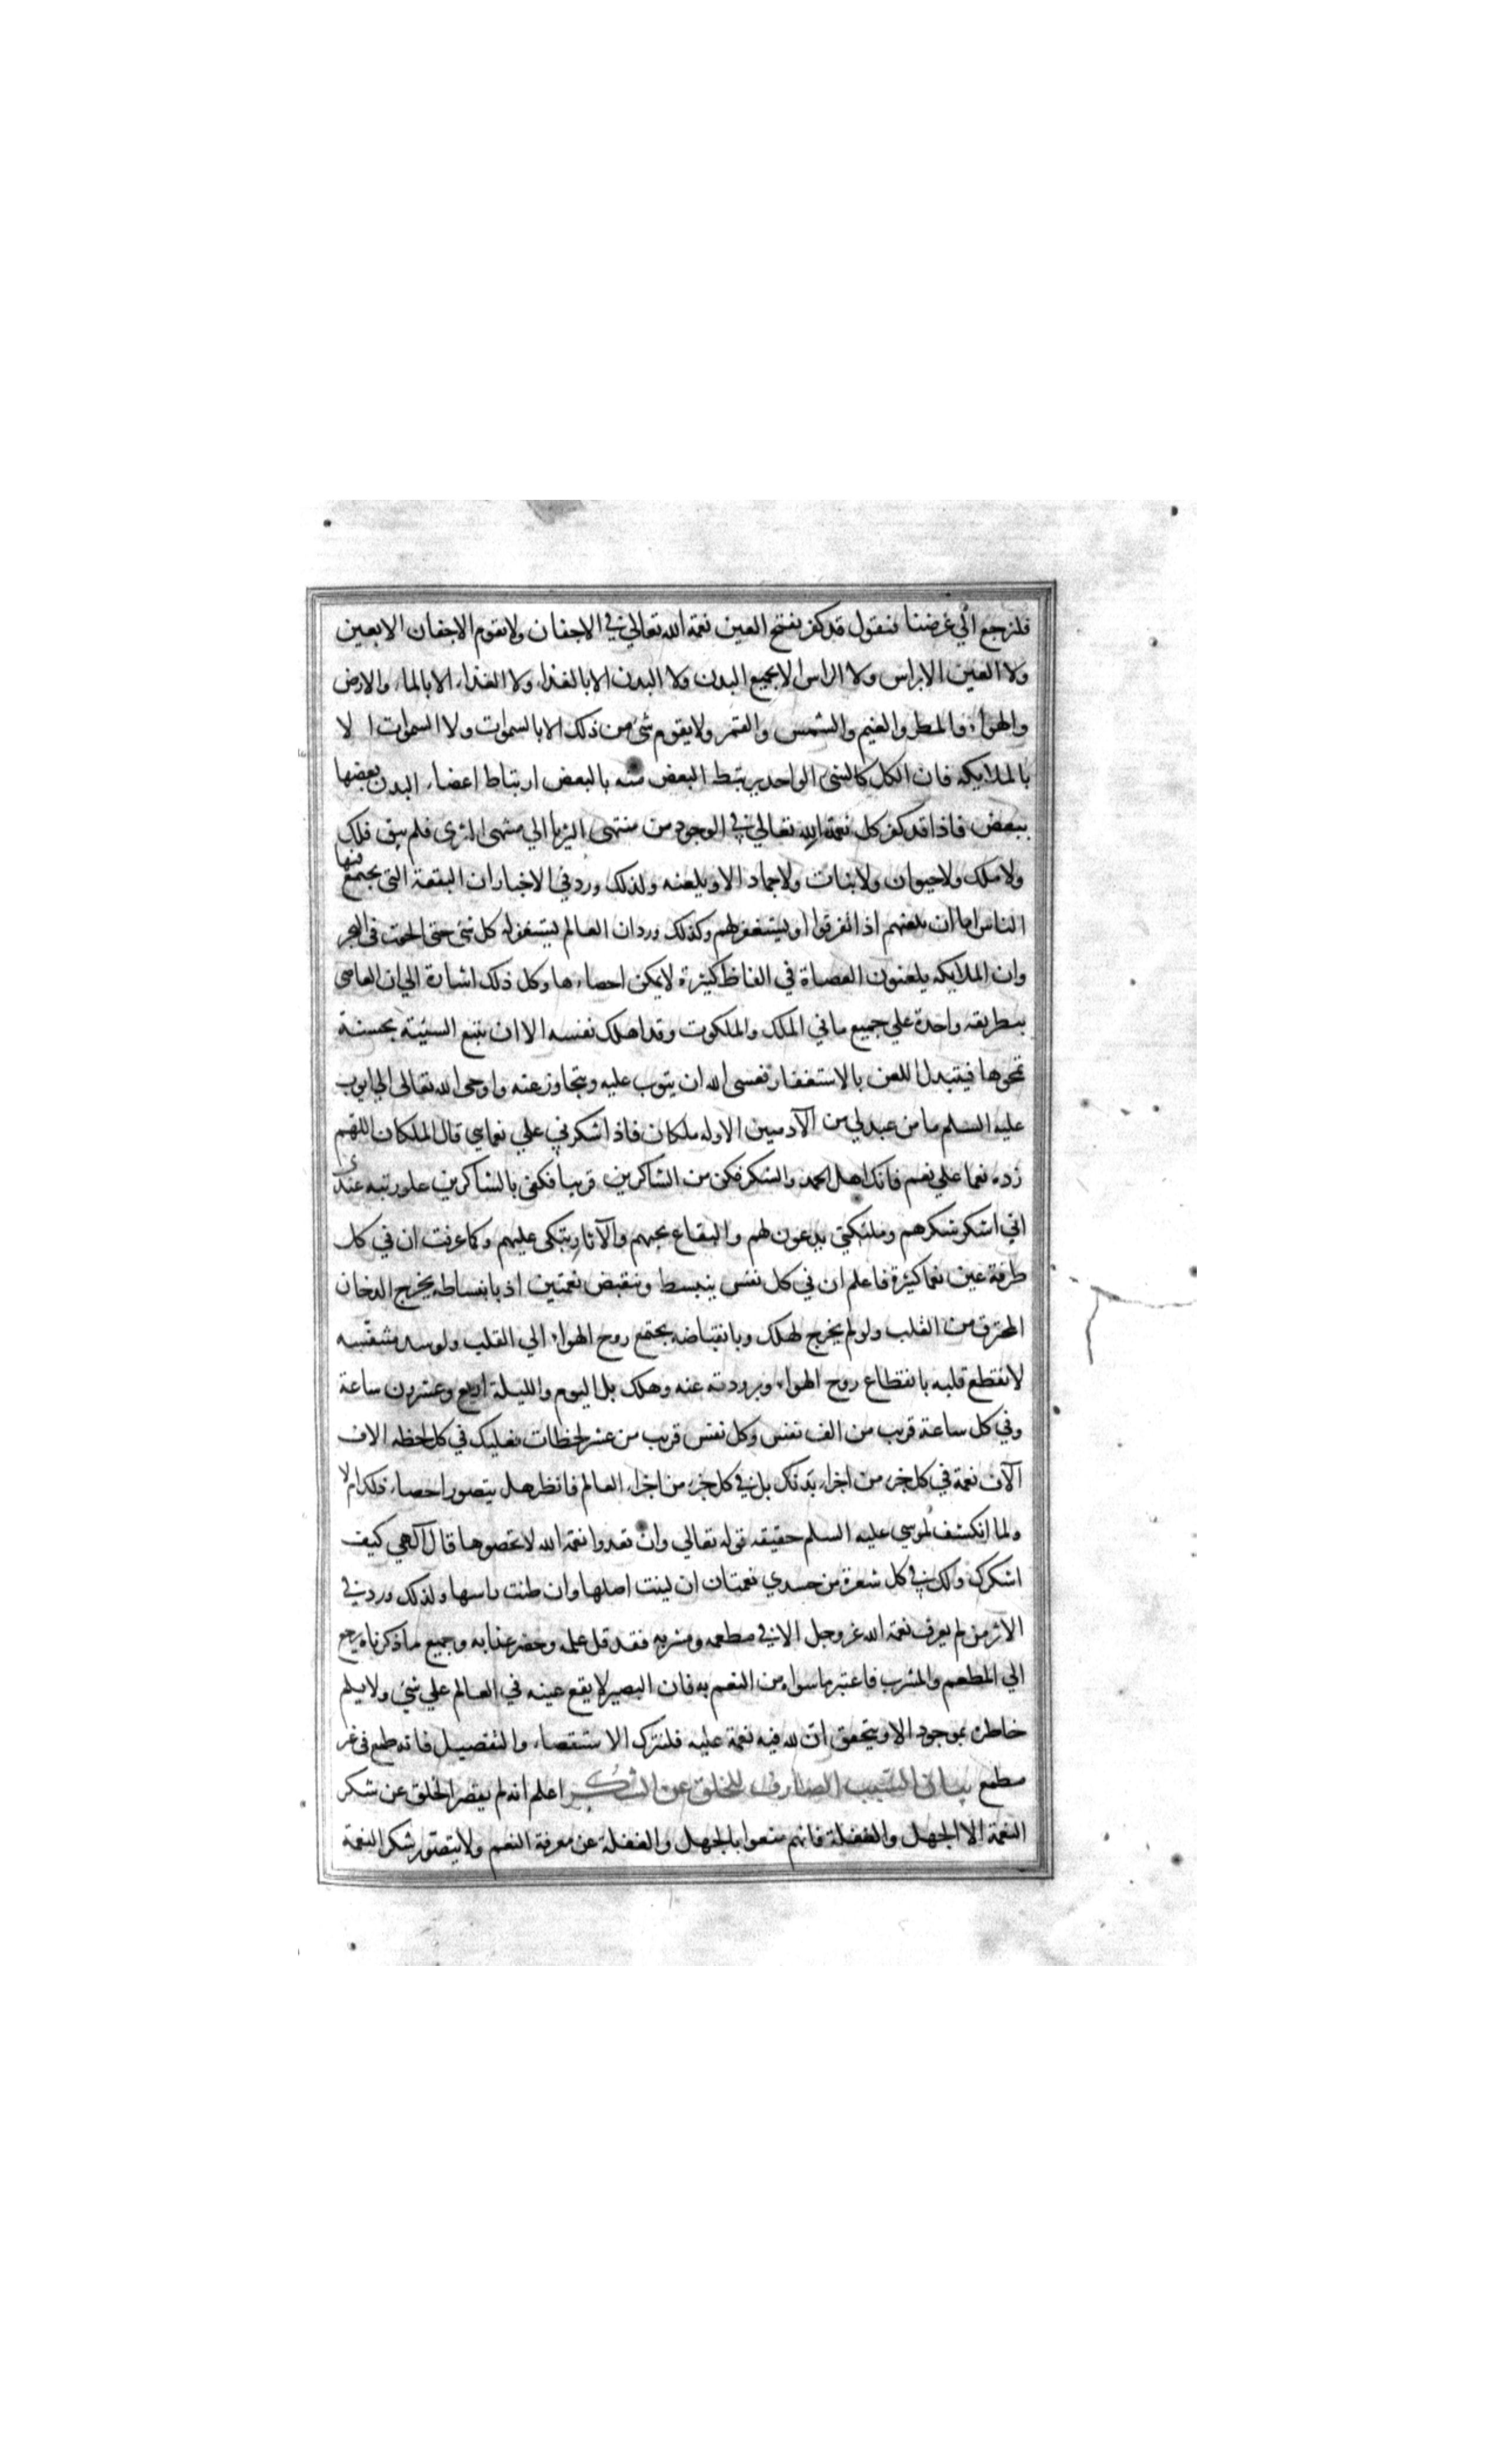 فلنرجع الي غرضنا فنقول قد كفر بفتح العين نعمة الله تعالي في الاجفان ولا يقوم الاجفان الا بعين
ولا العين الا براس ولا الراس الا بجميع البدن ولا البدن الا بالغذاء ولا الغذاء الا بالماء والارض
والهواء والمطر والغيم والشمس والقمر ولا يقوم شئ من ذلك الا بالسموات ولا السموات الا
بالملايكه فان الكل كالشئ الواحد يرتبط البعض منه بالبعض ارتباط اعضاء البدن بعضها
ببعض فاذا قد كفر كل نعمة الله تعالي في الوجود من منتهى الثريا الي منتهى الثرى فلم يبق فلك
ولا ملك ولا حيوان ولا نبات ولا جماد الا ويلعنه ولذلك ورد في الاخبار ان البقعة التي يجتمع فيها
الناس اما ان يلعنهم اذا تفرقوا او يستغفر لهم وكذلك ورد ان العالم ليستغفر له كل شئ حتى الحوت في البحر
وان الملايكه يلعنون العصاة في الفاظ كثيرة لا يمكن احصاءها وكل ذلك اشارة الي ان العاصى
بتطريقه واحدة علي جميع ما في الملك والملكوت وقد اهلك نفسه الا ان يتبع السيئة بحسنة
تمحوها فيتبدل اللعن بالاستغفار فعسى الله ان يتوب عليه ويتجاوز عنه واوحى الله تعالى الي ايوب
عليه السلم ما من عبد لي من الآدميين الا وله ملكان فاذا شكرني علي نعماي قال الملكان اللهم
زده نعما علي نعم فانك اهل الحمد والشكر فكن من الشاكرين قريبا فكفى بالشاكرين علو رتبه عندى
اني اشكر شكرهم وملئكتي يدعون لهم والبقاع تحبهم والآثار تبكى عليهم وكما عرفت ان في كل
طرفة عين نعما كثيرة فاعلم ان في كل نفس ينبسط وينقبض نعمتين اذ بانبساطه يخرج الدخان
المحترق من القلب ولو لم يخرج لهلك وبانقباضه يجتمع روح الهواء الي القلب ولو سد متنفسه
لانقطع قلبه بانقطاع روح الهواء وبرودته عنه وهلك بل اليوم والليلة اربع وعشرون ساعة
وفي كل ساعة قريب من الف نفس وكل نفس قريب من عشر لحظات فعليك في كل لحظه الاف
آلاف نعمة في كل جزء من اجزاء بدنك بل في كل جزء من اجزاء العالم فانظر هل يتصور احصاء ذلك ام لا
ولما انكشف لموسي عليه السلم حقيقه قوله تعالي وان تعدوا نعمة الله لا تحصوها قال آلهي كيف
اشكرك ولك في كل شعرة من جسدي نعمتان ان لينت اصلها وان طنت راسها ولذلك ورد في
الاثر من لم يعرف نعمة الله عز وجل الا في مطعمه ومشربه فقد قل علمه وحضر عذابه وجميع ما ذكرناه يرجع
الي المطعم والمشرب فاعتبر ما سواه من النعم به فان البصير لا يقع عينه في العالم علي شئ ولا يلم
خاطره بموجود الا ويتحقق ان لله فيه نعمة عليه فلنترك الاستقصاء والتفصيل فانه طمع في غر
مطمع بيان السبب الصارف للخلق عن الشكر اعلم انه لم يقصر الخلق عن شكر
النعمة الا الجهل والغفلة فانهم منعوا بالجهل والغفلة عن معرفة النعم ولا يتصور شكر النعمة